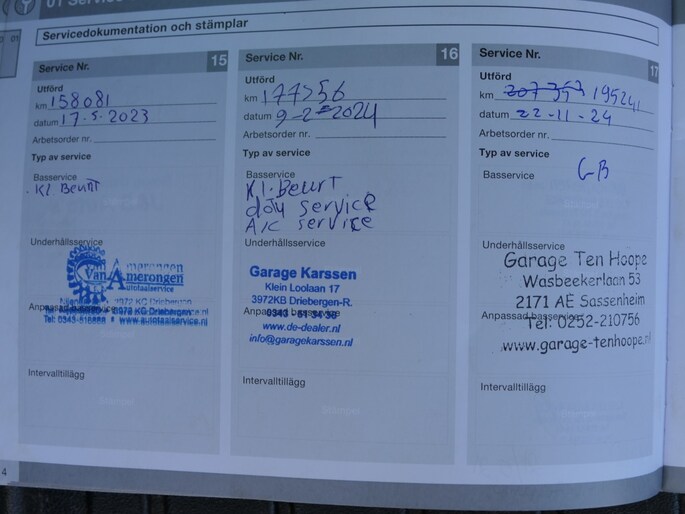 01 Service
Servicedokumentation och stämplar
Service Nr. 15
Utförd
km 158081
datum 17-5-2023
Arbetsorder nr.
Typ av service
Basservice
Kl. Beurt
Underhållsservice
Van Amerongen
Autotaalservice
3972 KG Driebergen
Anpassad basservice
www.autotaalservice.nl
Intervalltillägg
Service Nr. 16
Utförd
km 177756
datum 9-2-2024
Arbetsorder nr.
Typ av service
Basservice
Kl. Beurt
service
A/c service
Underhållsservice
Garage Karssen
Klein Loolaan 17
3972KB Driebergen-R.
Anpassad basservice
0343 - 51 34 36
www.de-dealer.nl
info@garagekarssen.nl
Intervalltillägg
Service Nr. 17
Utförd
km 195241
datum 22-11-24
Arbetsorder nr.
Typ av service
Basservice
GB
Underhållsservice
Garage Ten Hoope
Wasbeekerlaan 53
2171 AE Sassenheim
Anpassad basservice
Tel: 0252-210756
www.garage-tenhoope.nl
Intervalltillägg
4